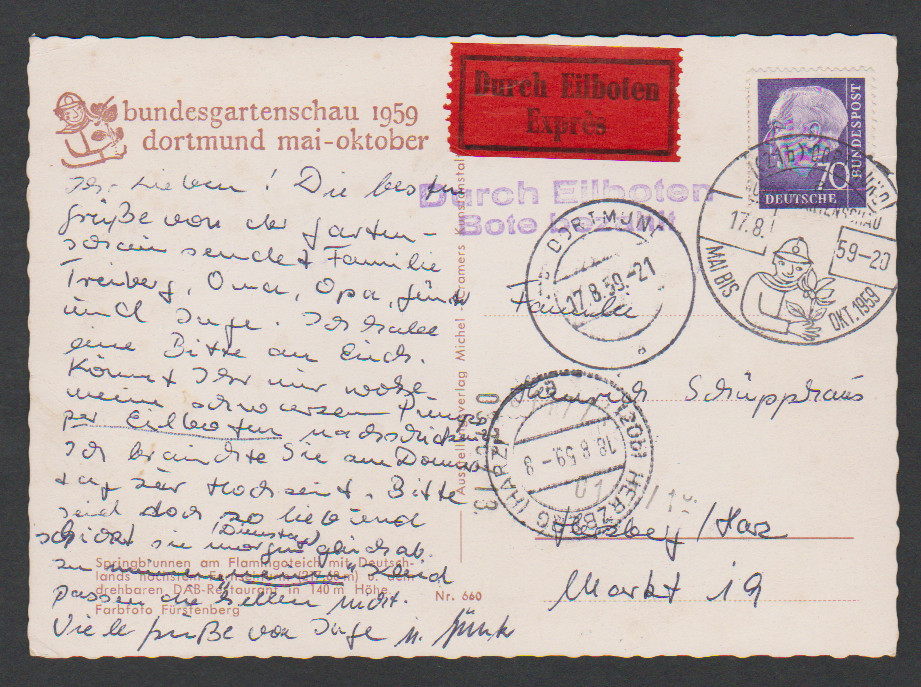 bundesgartenschau 1959
dortmund mai-oktober
Durch Eilboten
Exprès
70
DEUTSCHE
BUNDESPOST
Durch Eilboten
Bote bezahlt
DORTMUND
17.8.59.-21
a
17.8.
59-20
MAI BIS
OKT. 1959
Ihr Lieben! Die besten
Grüße von der Garten-
schau sendet Familie
Treiberg, Oma, Opa, Günter
und Inge. Ich habe
eine Bitte an Euch.
Könnt Ihr mir wohl
meine schwarzen Pumps
per Eilboten nachschicken
Ich brauchte Sie am Donners
tag zur Hochzeit. Bitte
seid doch so liebend
(Dienstag)
schickt sie morgen gleich ab.
zu Kleid
passen die hellen nicht.
Viele Grüße von Inge u. Günter
Familie
Heinrich Schüpphaus
Herzberg/Harz
Markt 19
(20b) HERZBERG (HARZ)
18.8.59.-8
Ausstellungsverlag Michel - Cramers Kunstanstalt
Springbrunnen am Flamingoteich mit Deutsch-
lands höchstem Fernsehturm u. dem
drehbaren DAB-Restaurant in 140 m Höhe
Farbfoto Fürstenberg
Nr. 660